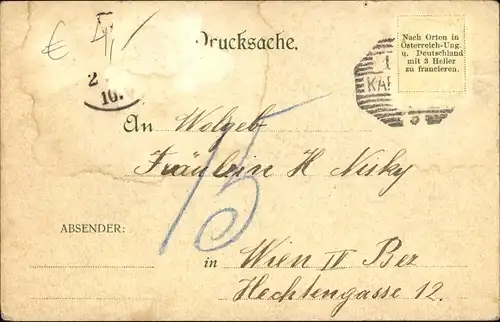 € 4,-
Drucksache.
Nach Orten in
Österreich-Ung.
u. Deutschland
mit 3 Heller
zu francieren.
1
KA
2
10.
An Wolgeb
Fräulein H Nisky
15
ABSENDER:
in Wien IV Bez
Hechtengasse 12.